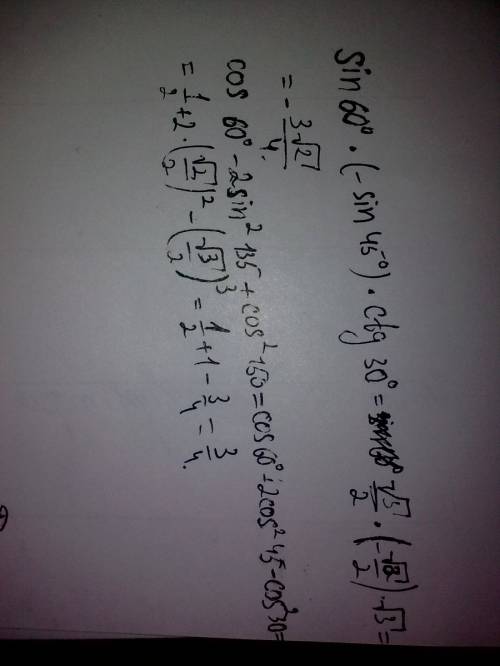 sin 60° · (-sin 45°) · ctg 30° = √3/2 · (-√2/2) · √3 =
= - 3√2/4.
cos 60° - 2sin² 135 + cos² 150 = cos 60° + 2cos² 45 - cos² 30 =
= 1/2 + 2 · (√2/2)² - (√3/2)³ = 1/2 + 1 - 3/4 = 3/4.